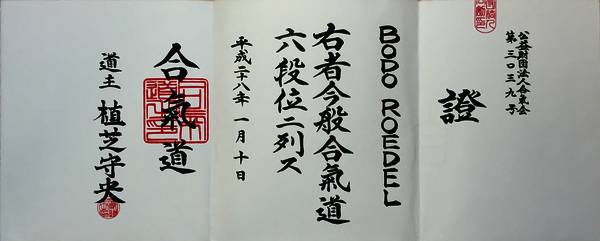 公益財団法人合氣会
第三〇三九号
證
BODO ROEDEL
右者今般合氣道
六段位ニ列ス
平成二十八年一月十日
合氣道
道主 植芝守央